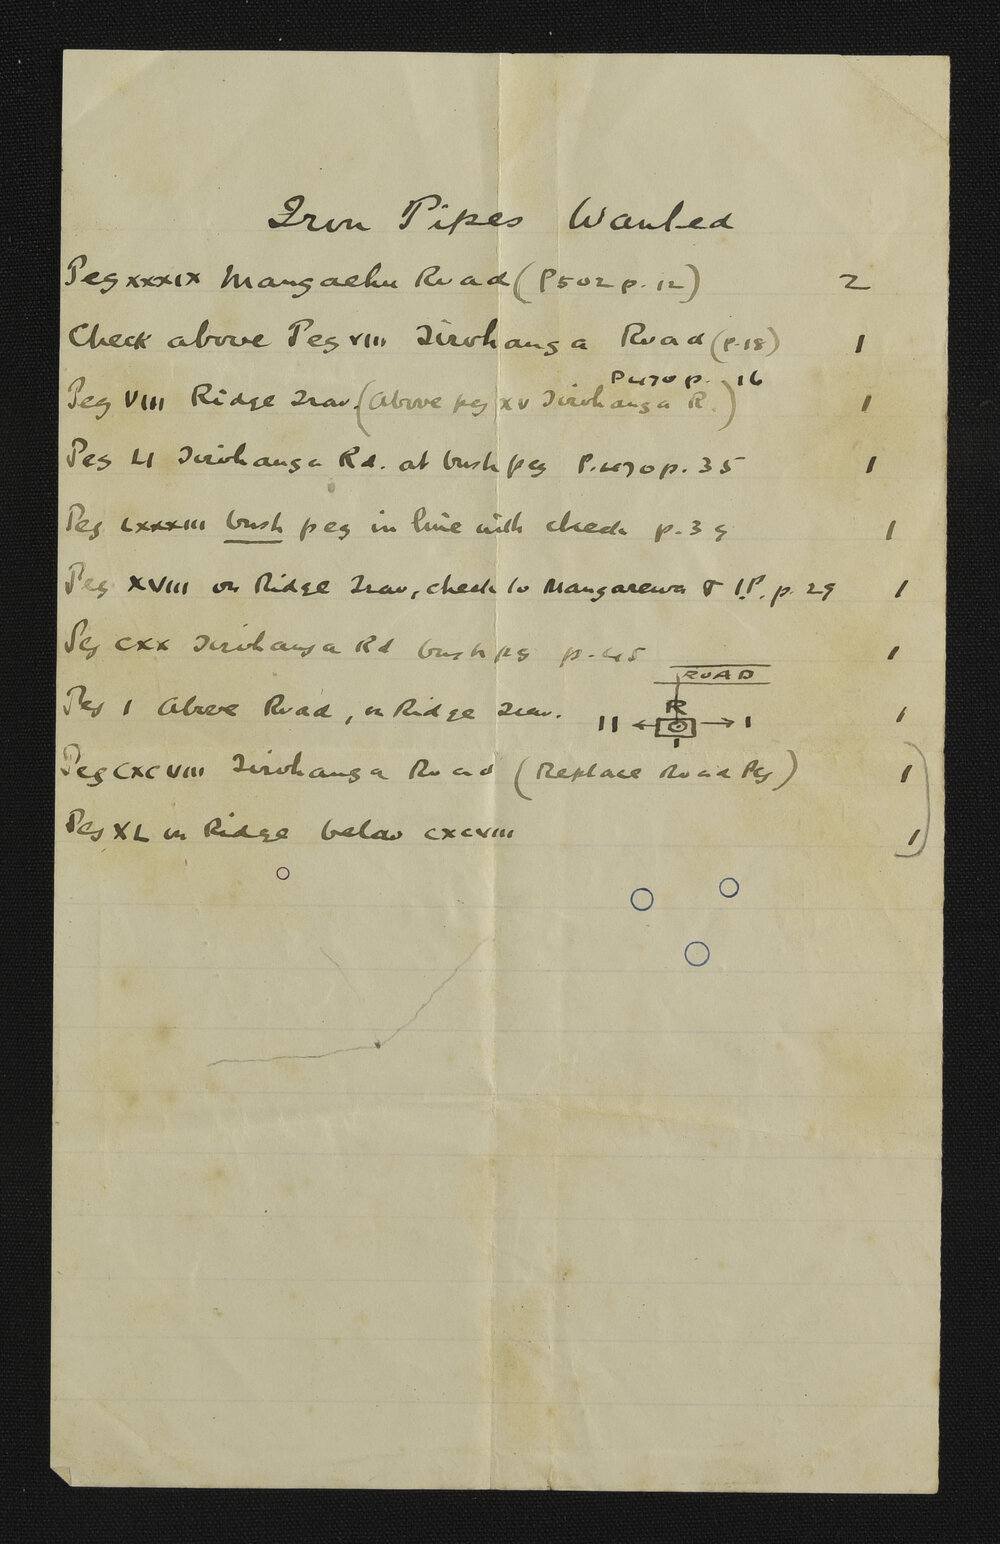 Iron Pipes Wanted
Peg XXXIX Mangaehu Road (P502 p. 12) 2
Check above Peg VIII Tirohanga Road (p.18) 1
P470 p. 16
Peg VIII Ridge Trav. (Above peg XV Tirohanga R.) 1
Peg LI Tirohanga Rd. at bush peg P.470 p. 35 1
Peg LXXXIII bush peg in line with check p. 39 1
Peg XVIII on Ridge Trav, check to Mangarewa T I.P. p. 29 1
Peg CXX Tirohanga Rd bush peg p. 45 1
ROAD
Peg I Above Road, on Ridge Trav. 1
R
II I
I
Peg CXCVIII Tirohanga Road (Replace Road Peg) 1
Peg XL on Ridge below CXCVIII 1